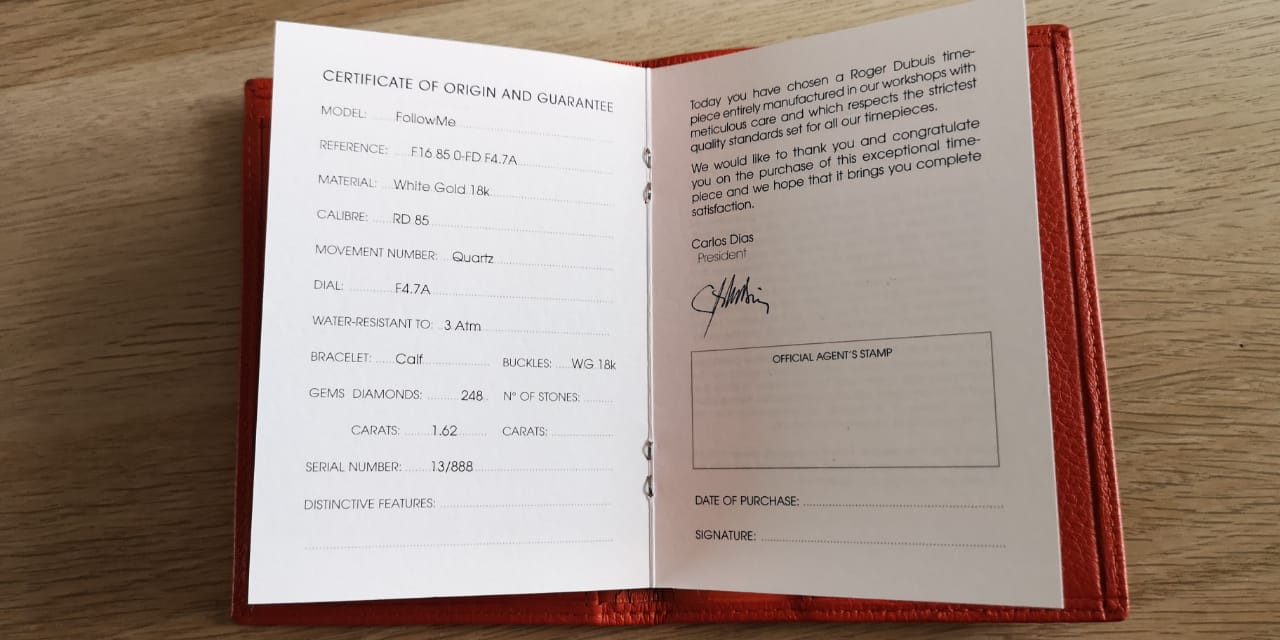 CERTIFICATE OF ORIGIN AND GUARANTEE
MODEL: FollowMe
REFERENCE: F16 85 0-FD F4.7A
MATERIAL: White Gold 18k
CALIBRE: RD 85
MOVEMENT NUMBER: Quartz
DIAL: F4.7A
WATER-RESISTANT TO: 3 Atm
BRACELET: Calf BUCKLES: WG 18k
GEMS DIAMONDS: 248 N° OF STONES:
CARATS: 1.62 CARATS:
SERIAL NUMBER: 13/888
DISTINCTIVE FEATURES:
Today you have chosen a Roger Dubuis time-
piece entirely manufactured in our workshops with
meticulous care and which respects the strictest
quality standards set for all our timepieces.
We would like to thank you and congratulate
you on the purchase of this exceptional time-
piece and we hope that it brings you complete
satisfaction.
Carlos Dias
President
OFFICIAL AGENT'S STAMP
DATE OF PURCHASE:
SIGNATURE: